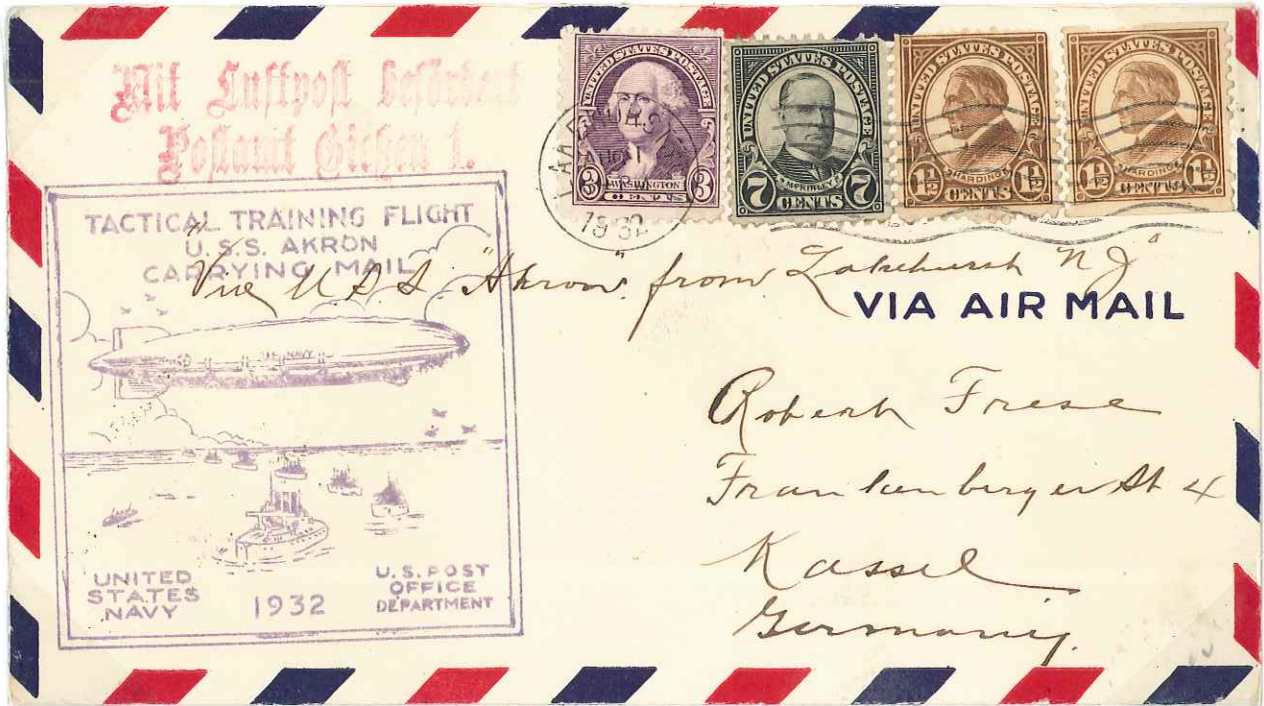 Mit Luftpost befördert
Postamt Gießen 1.
UNITED STATES POSTAGE
WASHINGTON
3 CENTS 3
UNITED STATES POSTAGE
McKINLEY
7 CENTS 7
UNITED STATES POSTAGE
HARDING
1½ CENTS 1½
UNITED STATES POSTAGE
HARDING
1½ CENTS 1½
1932
TACTICAL TRAINING FLIGHT
U.S.S. AKRON
CARRYING MAIL
U.S. NAVY
UNITED
STATES
NAVY
1932
U.S. POST
OFFICE
DEPARTMENT
"Via U S S "Akron" from Lakehurst "N J"
VIA AIR MAIL
Robert Frese
Frankenberger St 4
Kassel
Germany.